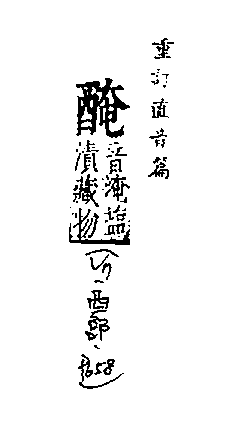 重訂直音篇
醃
音淹鹽
漬藏物
酉部